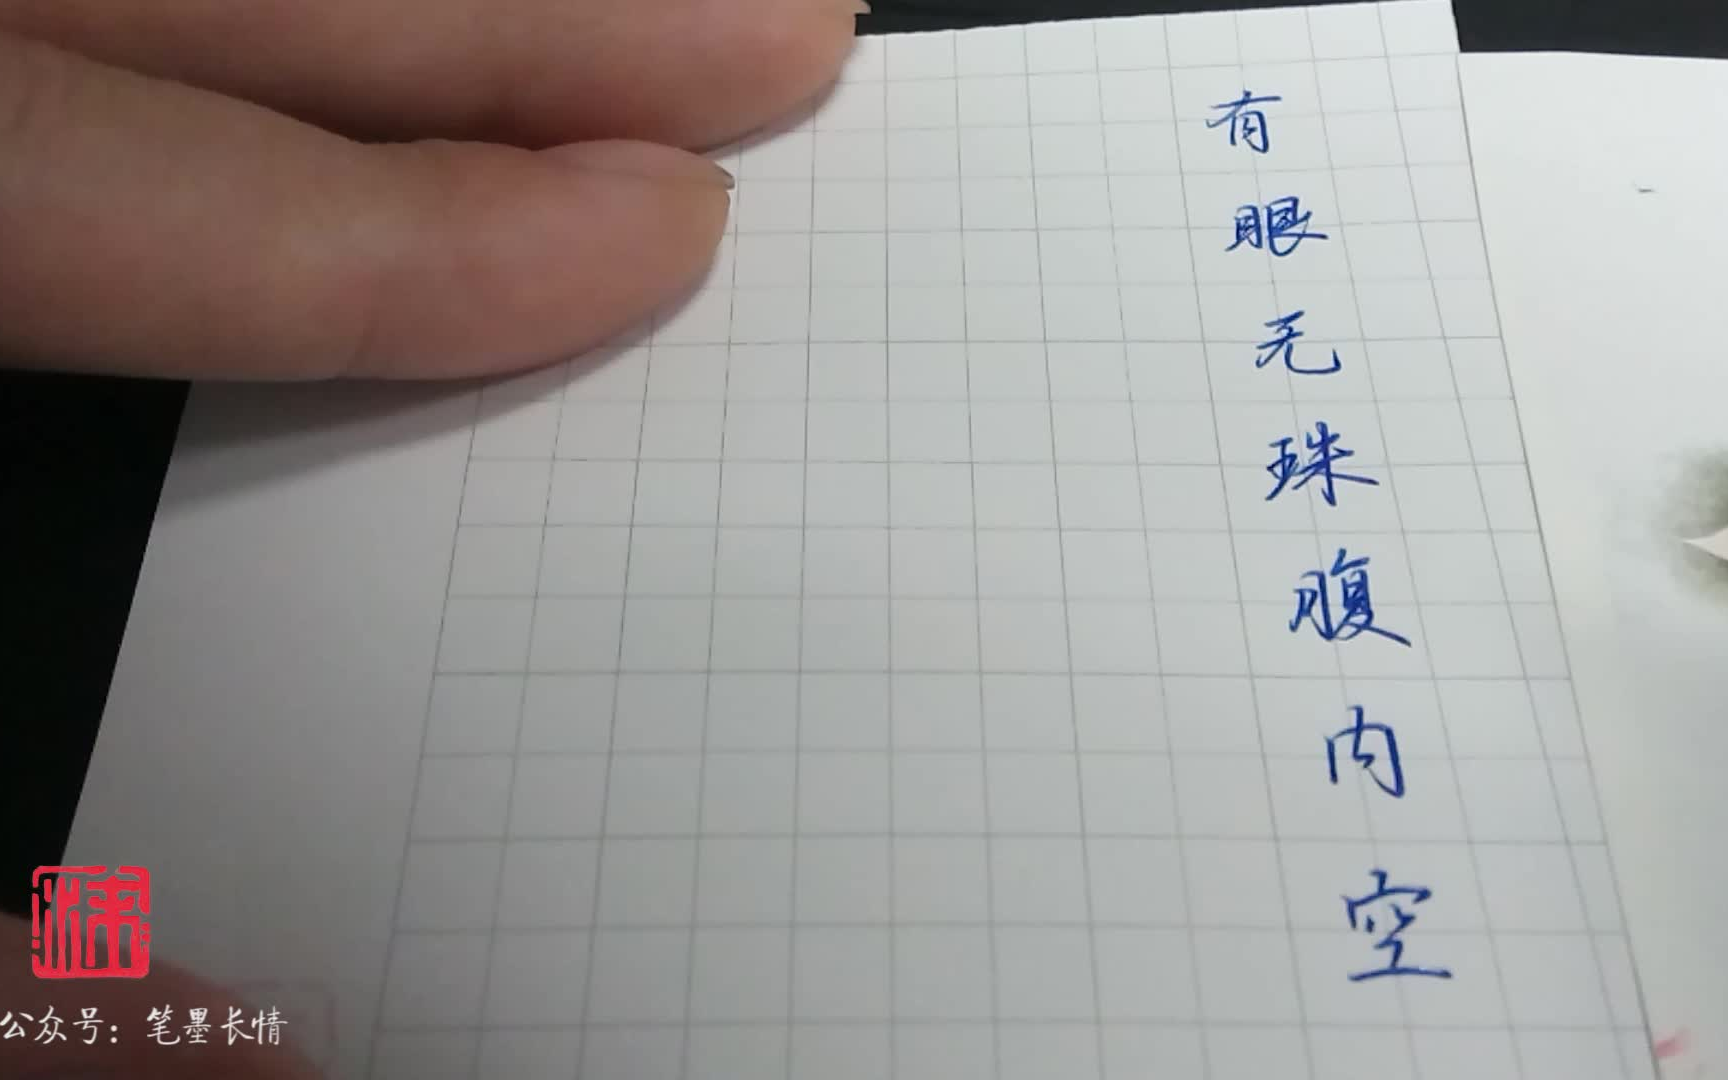 有眼无珠腹内空
公众号：笔墨长情